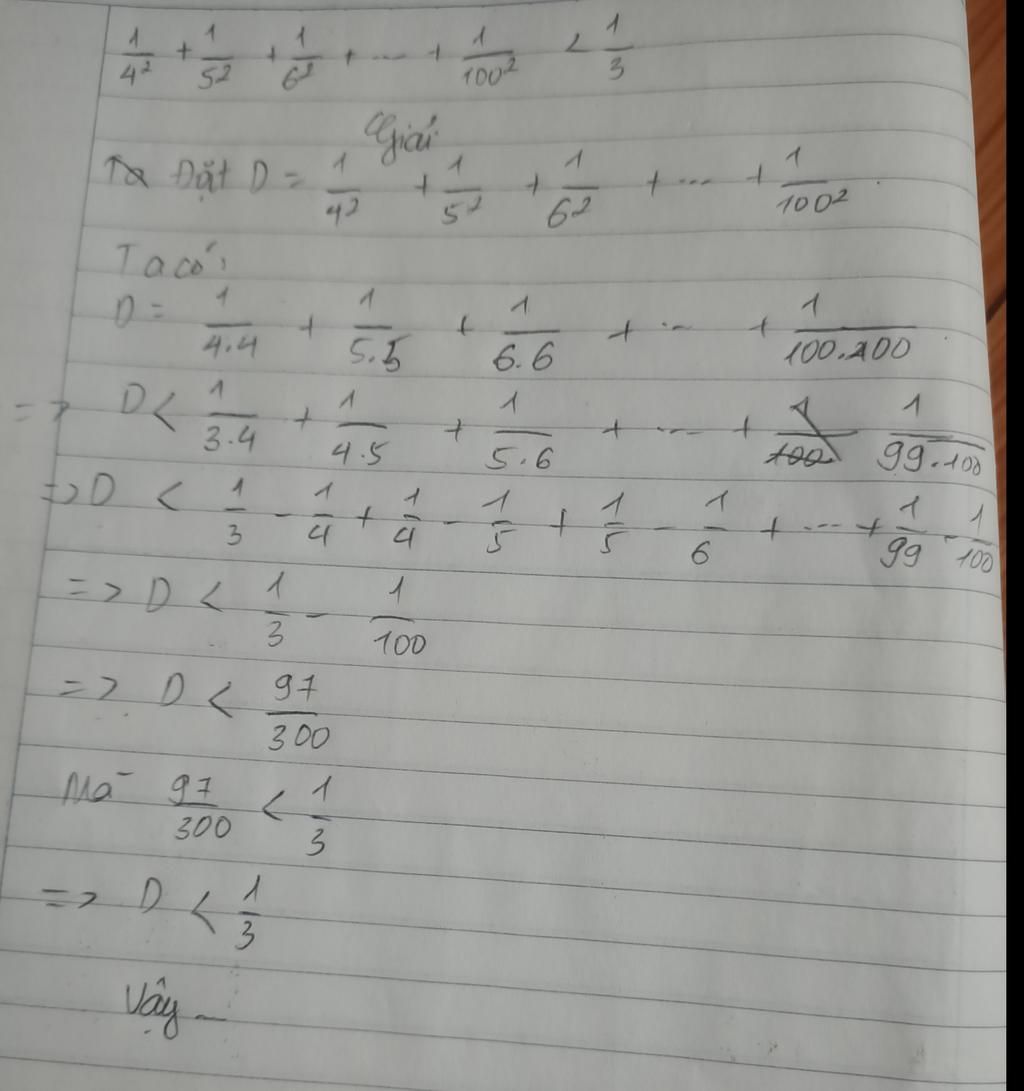 1/4² + 1/5² + 1/6² + ... + 1/100² < 1/3
Giải
Ta Đặt D = 1/4² + 1/5² + 1/6² + ... + 1/100².
Ta có:
D = 1/4.4 + 1/5.5 + 1/6.6 + ... + 1/100.100
=> D < 1/3.4 + 1/4.5 + 1/5.6 + ... + 1/99.100
=> D < 1/3 - 1/4 + 1/4 - 1/5 + 1/5 - 1/6 + ... + 1/99 - 1/100
=> D < 1/3 - 1/100
=> D < 97/300
Mà 97/300 < 1/3
=> D < 1/3
Vậy ...